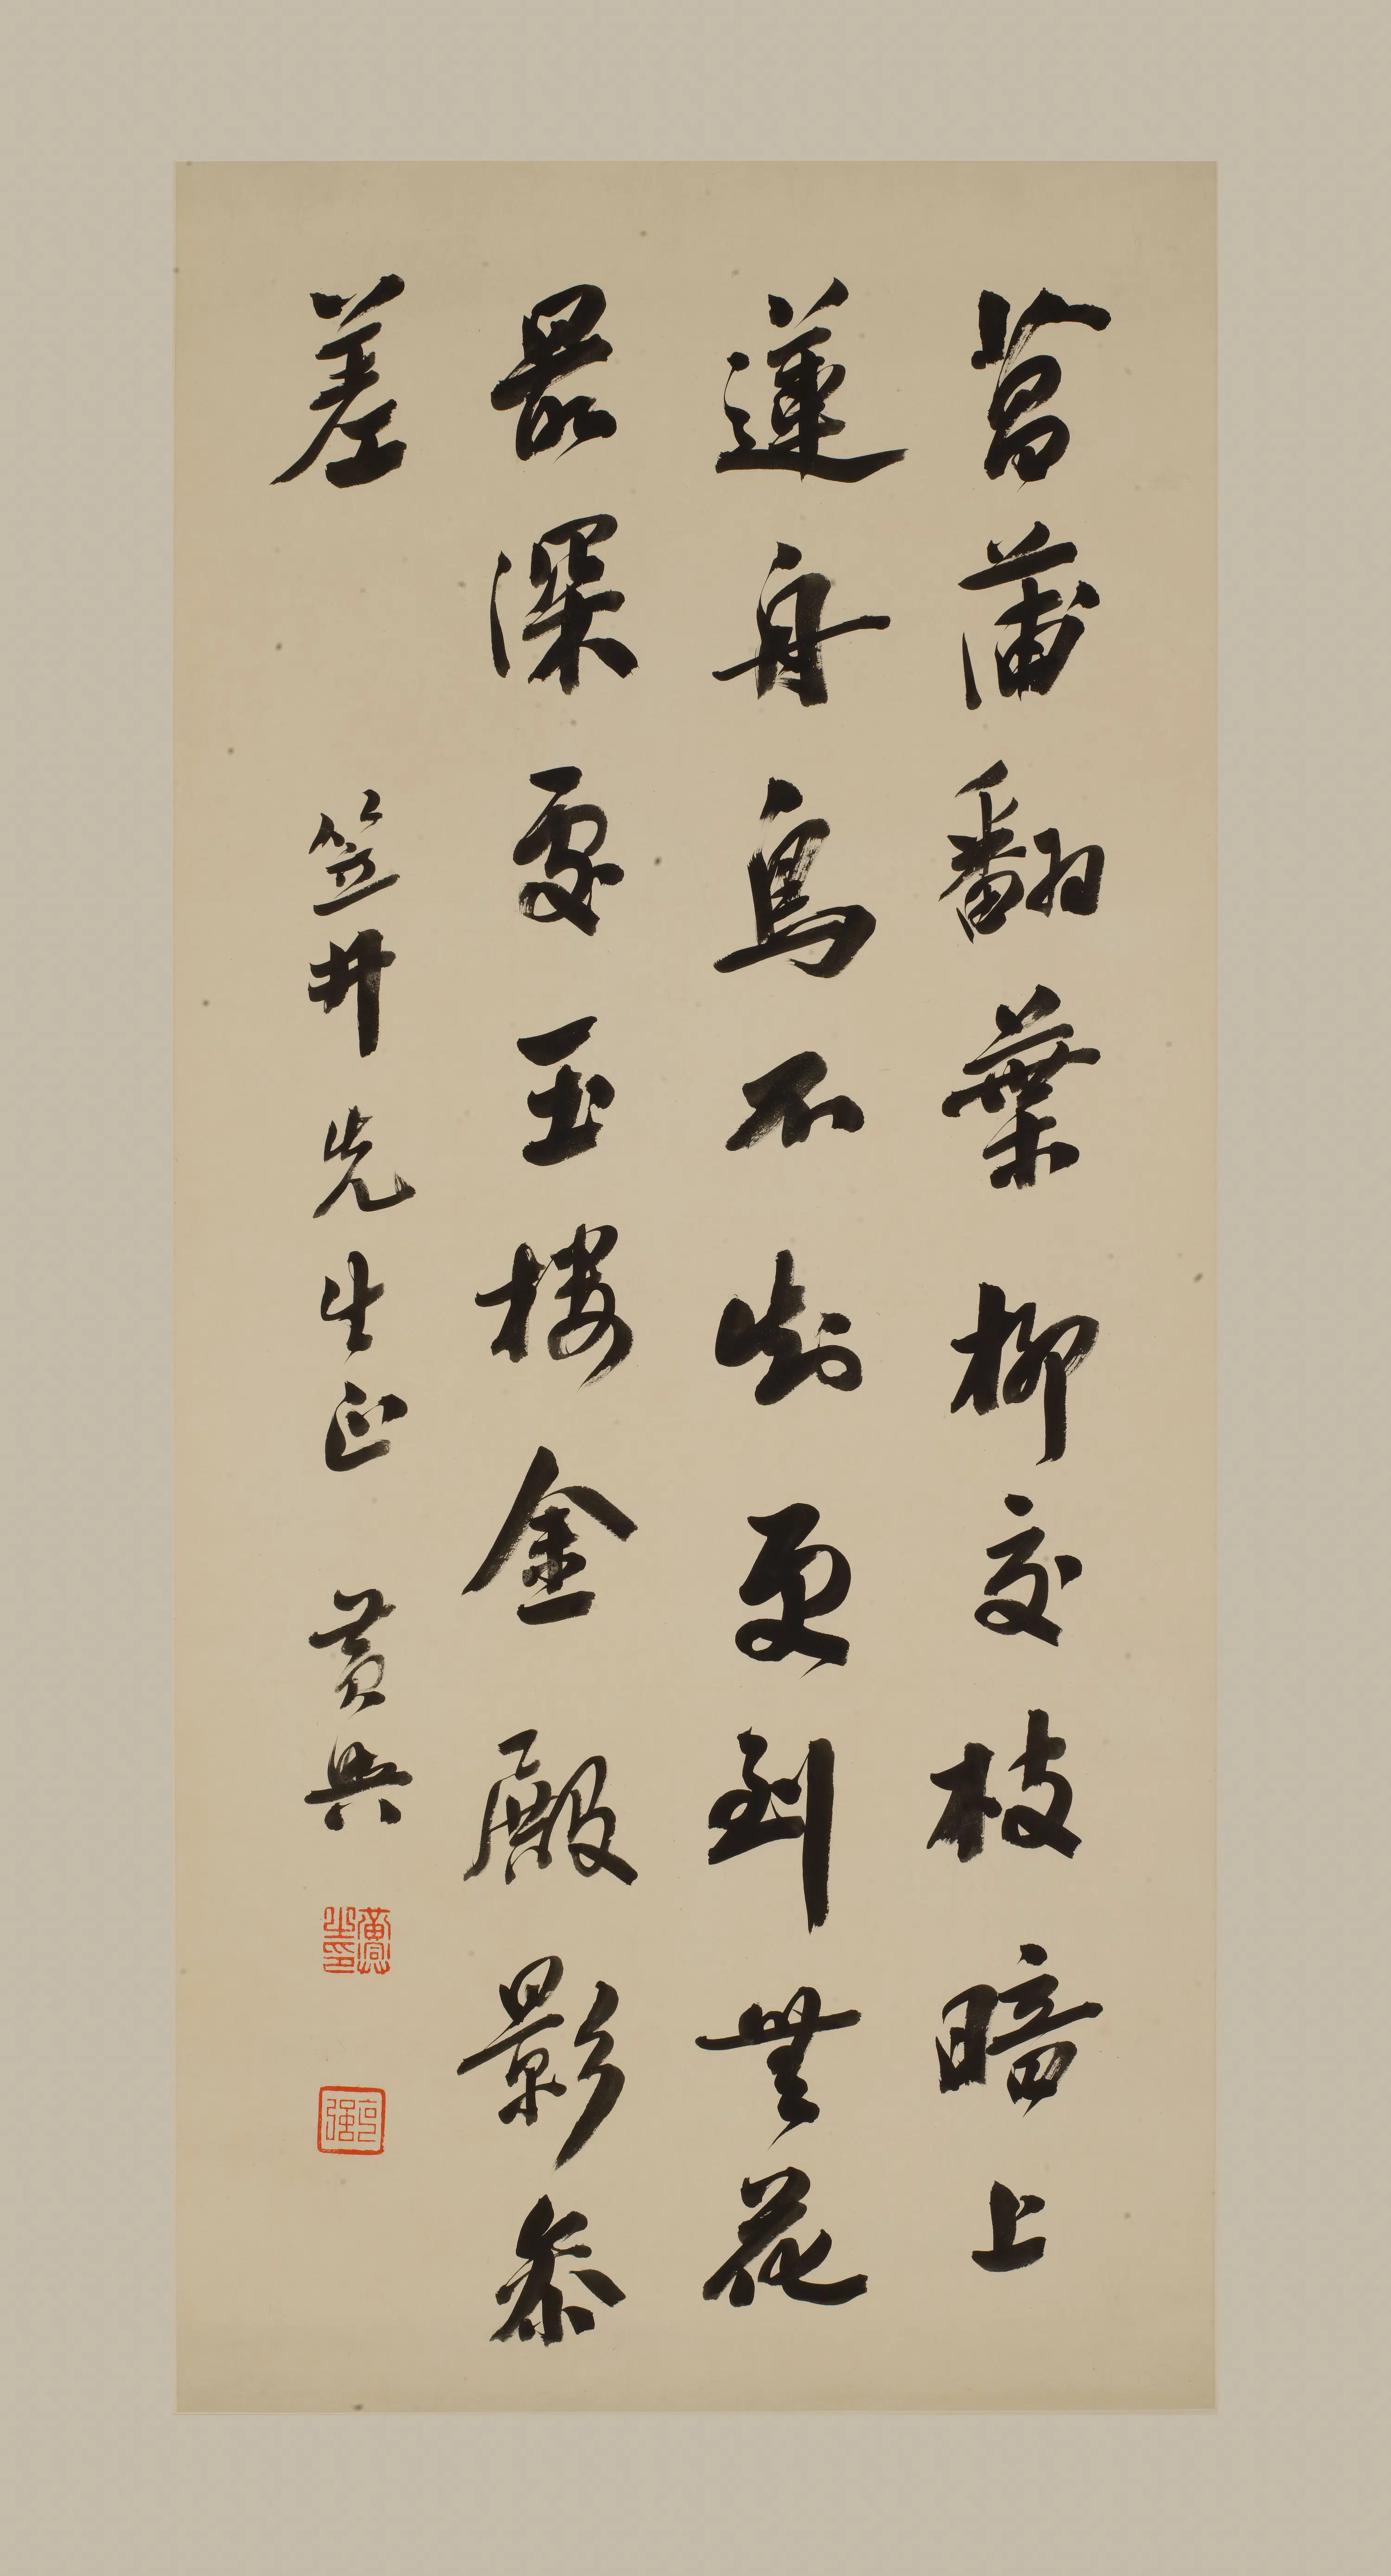 菖蒲翻葉柳交枝暗上
蓮舟鳥不知更到無花
最深處玉樓金殿影參
差
笠井先生正 黃興
黃興之印